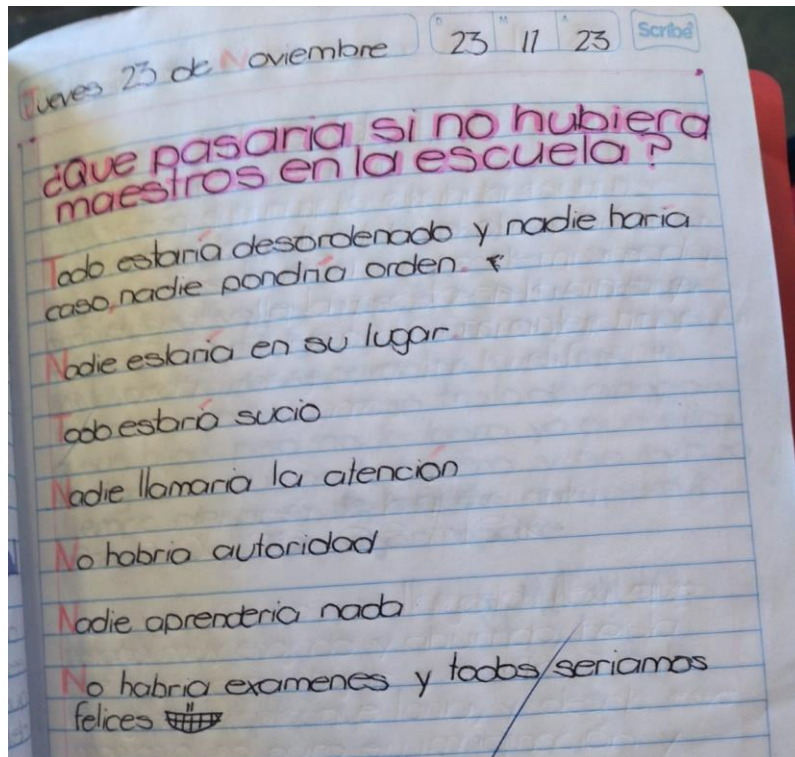 Jueves 23 de Noviembre
D M A
23 11 23
Scribe
¿Que pasaria si no hubiera
maestros en la escuela?
Todo estaría desordenado y nadie haria
caso, nadie pondría orden.
Nadie estaría en su lugar.
Todo estaría sucio
Nadie llamaria la atención
No habria autoridad
Nadie aprenderia nada
No habria examenes y todos/seriamos
felices